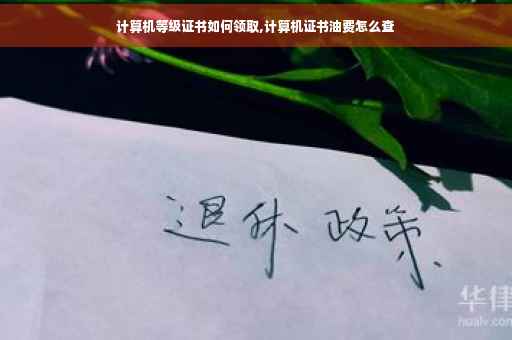 计算机等级证书如何领取,计算机证书油费怎么查
退休 政策
华律
hualv.com